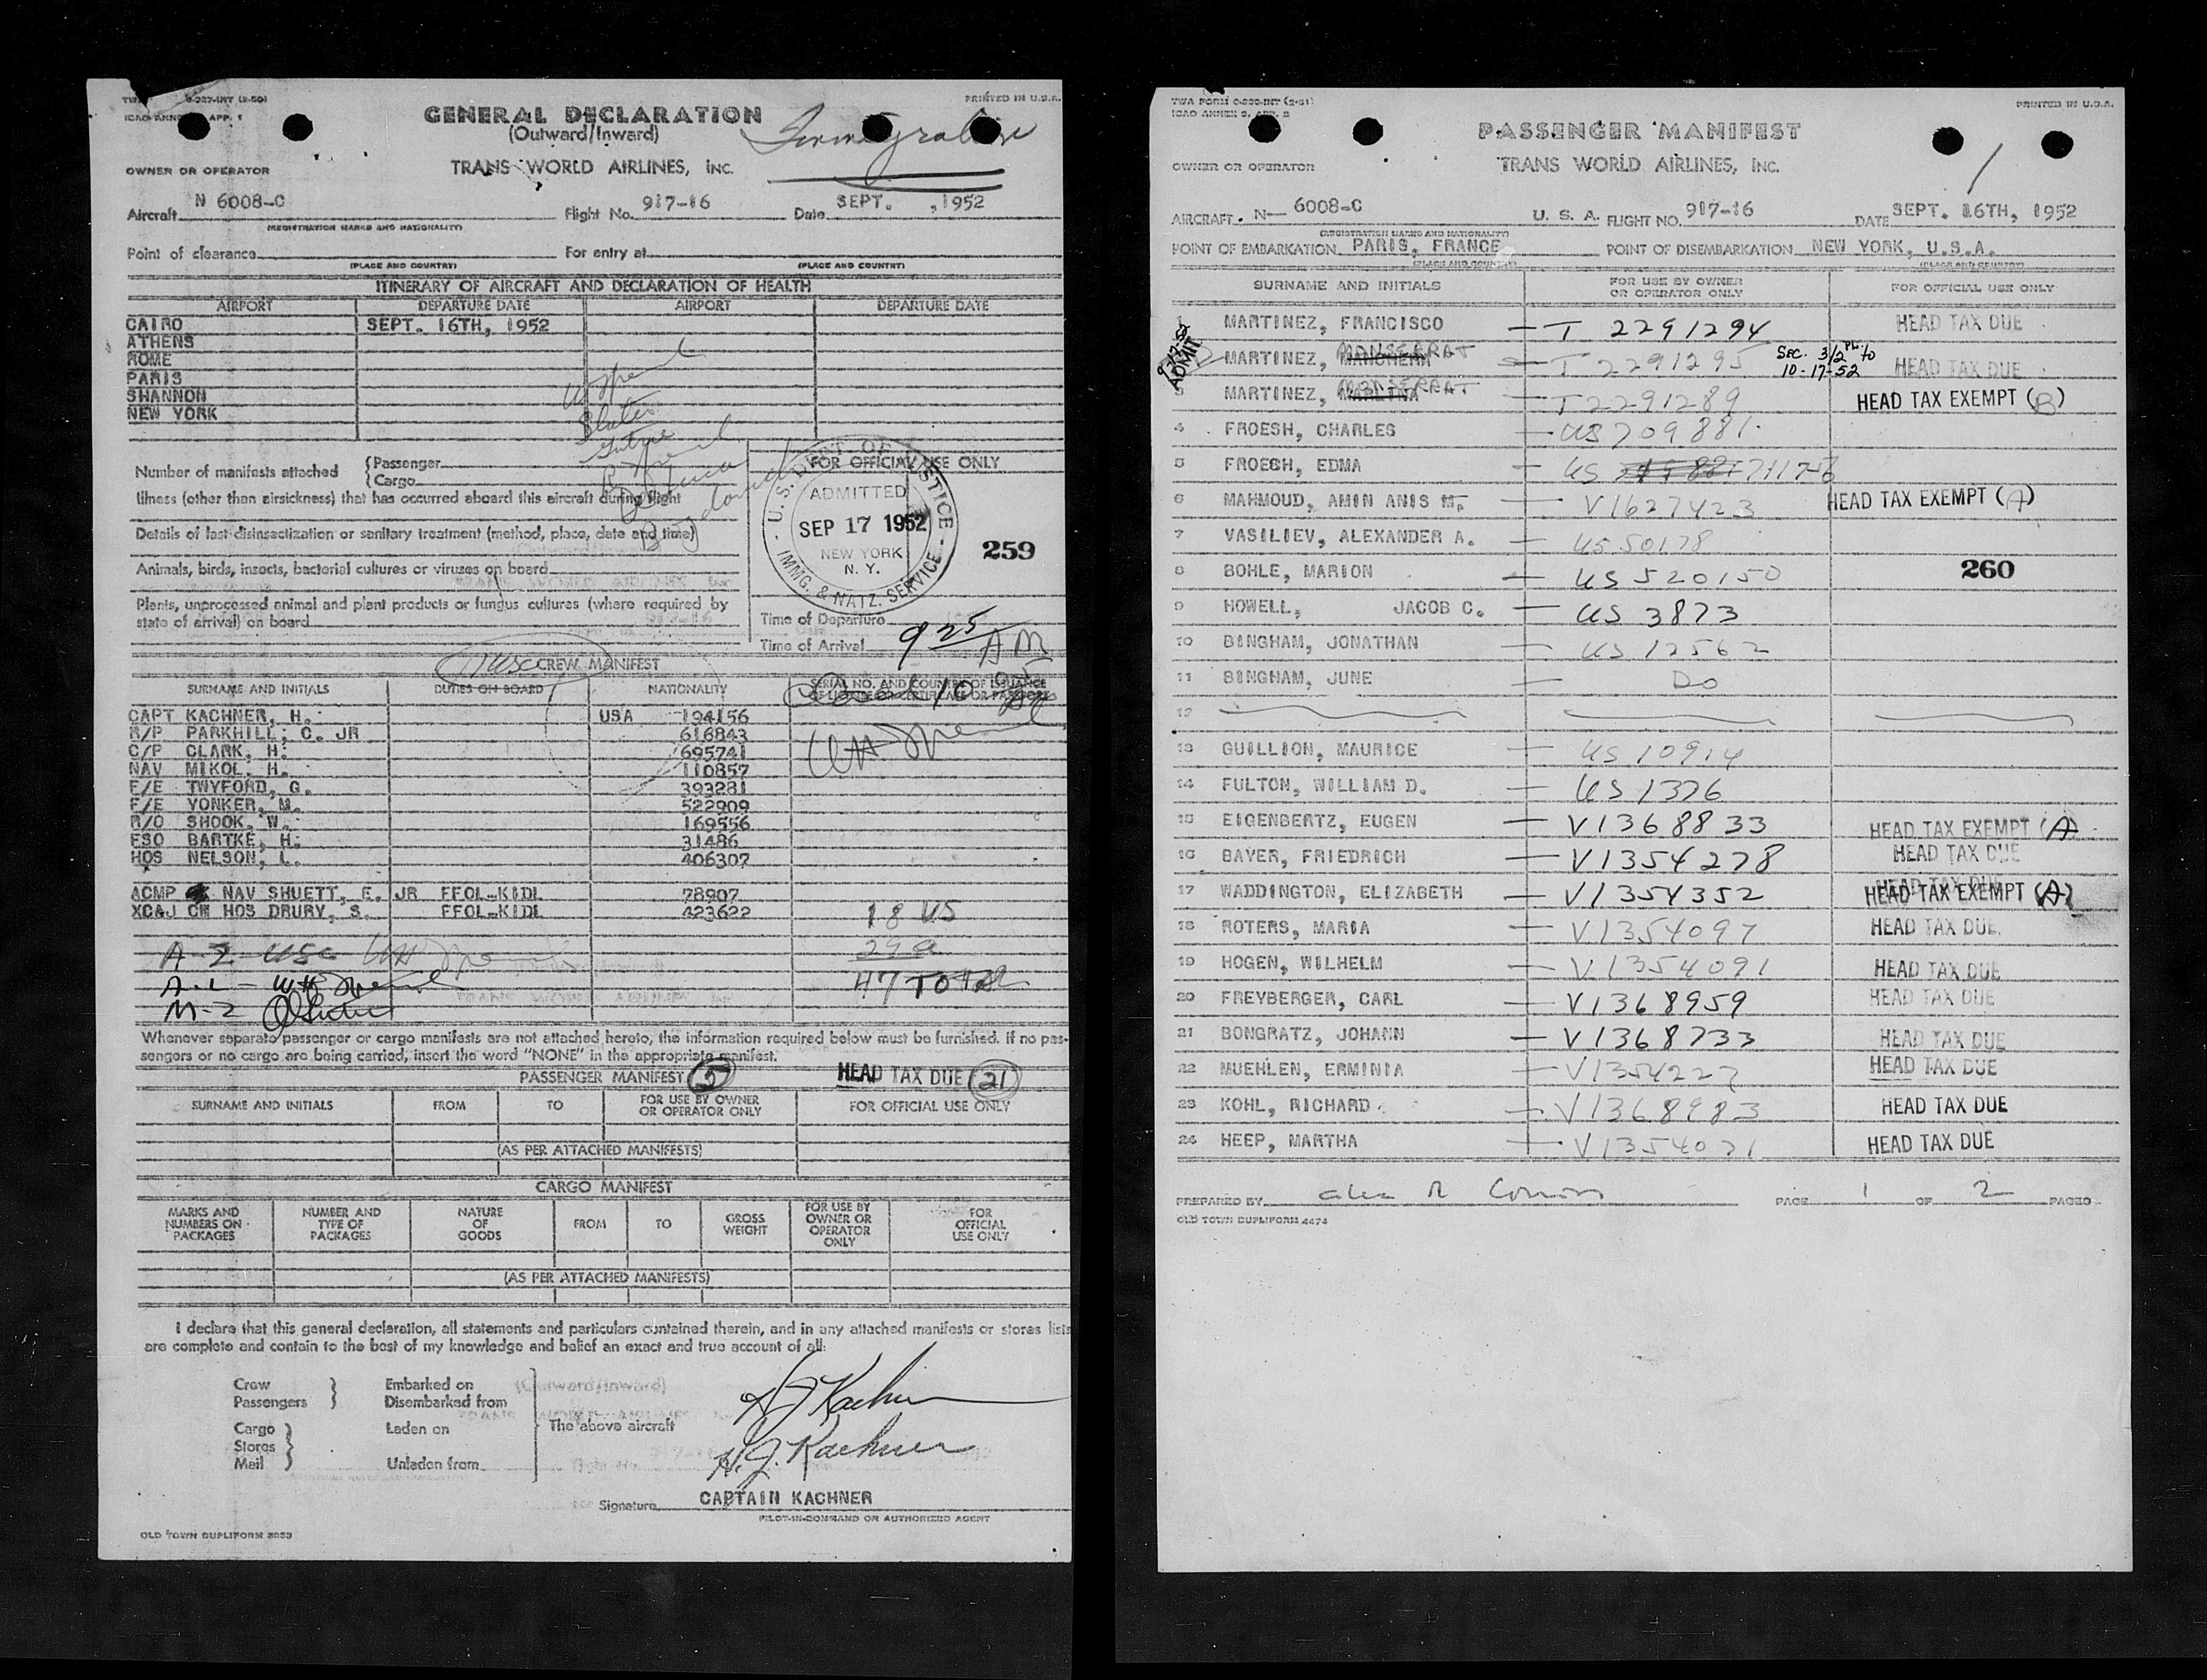 PRINTED IN U.S.A.
ICAO ANNEX APP. 1
GENERAL DECLARATION
(Outward/Inward)
Immigration
OWNER OR OPERATOR
TRANS WORLD AIRLINES, INC.
Aircraft N 6008-C Flight No. 917-16 Date SEPT. , 1952
(REGISTRATION MARKS AND NATIONALITY)
Point of clearance For entry at
(PLACE AND COUNTRY) (PLACE AND COUNTRY)
ITINERARY OF AIRCRAFT AND DECLARATION OF HEALTH
AIRPORT DEPARTURE DATE AIRPORT DEPARTURE DATE
CAIRO SEPT. 16TH, 1952
ATHENS
ROME
PARIS
SHANNON
NEW YORK
Number of manifests attached {Passenger
{Cargo
FOR OFFICIAL USE ONLY
Illness (other than airsickness) that has occurred aboard this aircraft during flight
Details of last disinsectization or sanitary treatment (method, place, date and time)
Animals, birds, insects, bacterial cultures or viruses on board
Plants, unprocessed animal and plant products or fungus cultures (where required by
state of arrival) on board
U.S. DEPT. OF JUSTICE
ADMITTED
SEP 17 1952
NEW YORK
N. Y.
IMMG. & NATZ. SERVICE
259
Time of Departure
Time of Arrival 9 25 AM
CREW MANIFEST
SURNAME AND INITIALS DUTIES ON BOARD NATIONALITY SERIAL NO. AND COUNTRY OF ISSUANCE
OF LICENSE OR CERTIFICATE OR PASSPORT
CAPT KACHNER, H. USA 194156
R/P PARKHILL, C. JR 616843
C/P CLARK, H. 695741
NAV MIKOL, H. 110857
F/E TWYFORD, G. 393281
F/E YONKER, M. 522909
R/O SHOOK, W. 169556
FSO BARTKE, H. 31486
HOS NELSON, L. 406307
ACMP NAV SHUETT, E. JR FFOL-KIDL 78907
XCAJ CM HOS DRURY, S. FFOL-KIDL 423622
18 US
29 a
47 TOTAL
A-2 USC
A-1 -
M-2
Whenever separate passenger or cargo manifests are not attached hereto, the information required below must be furnished. If no pas-
sengers or no cargo are being carried, insert the word "NONE" in the appropriate manifest.
PASSENGER MANIFEST 5 HEAD TAX DUE (21)
SURNAME AND INITIALS FROM TO FOR USE BY OWNER
OR OPERATOR ONLY FOR OFFICIAL USE ONLY
(AS PER ATTACHED MANIFESTS)
CARGO MANIFEST
MARKS AND
NUMBERS ON
PACKAGES
NUMBER AND
TYPE OF
PACKAGES
NATURE
OF
GOODS
FROM
TO
GROSS
WEIGHT
FOR USE BY
OWNER OR
OPERATOR
ONLY
FOR
OFFICIAL
USE ONLY
(AS PER ATTACHED MANIFESTS)
I declare that this general declaration, all statements and particulars contained therein, and in any attached manifests or stores lists
are complete and contain to the best of my knowledge and belief an exact and true account of all:
Crew Embarked on
Passengers Disembarked from
Cargo Laden on The above aircraft
Stores
Mail Unladen from
H J Kachner
H. J. Kachner
Signature CAPTAIN KACHNER
PILOT-IN-COMMAND OR AUTHORIZED AGENT
OLD TOWN DUPLIFORM
PRINTED IN U.S.A.
PASSENGER MANIFEST
OWNER OR OPERATOR TRANS WORLD AIRLINES, INC.
1
AIRCRAFT. N— 6008-C U. S. A. FLIGHT NO. 917-16 DATE SEPT. 16TH, 1952
(REGISTRATION MARKS AND NATIONALITY)
POINT OF EMBARKATION PARIS, FRANCE POINT OF DISEMBARKATION NEW YORK, U.S.A.
(PLACE AND COUNTRY) (PLACE AND COUNTRY)
SURNAME AND INITIALS FOR USE BY OWNER
OR OPERATOR ONLY FOR OFFICIAL USE ONLY
1 MARTINEZ, FRANCISCO — T 2291294 HEAD TAX DUE
ADMIT
MARTINEZ, MONSERRAT T 2291295 SEC. 3/2 PL. to 10-17-52 HEAD TAX DUE
3 MARTINEZ, MONSERRAT T2291289 HEAD TAX EXEMPT (B)
4 FROESH, CHARLES — US 709881
5 FROESH, EDMA — US 711776
6 MAHMOUD, AMIN ANIS M. — V1627423 HEAD TAX EXEMPT (A)
7 VASILIEV, ALEXANDER A. — US 50178
8 BOHLE, MARION — US 520150
260
9 HOWELL, JACOB C. — US 3873
10 BINGHAM, JONATHAN — US 12562
11 BINGHAM, JUNE — Do
12
13 GUILLION, MAURICE — US 10914
14 FULTON, WILLIAM D. — US 1376
15 EIGENBERTZ, EUGEN — V1368833 HEAD TAX EXEMPT (A)
16 BAYER, FRIEDRICH — V1354278 HEAD TAX DUE
17 WADDINGTON, ELIZABETH — V1354352 HEAD TAX EXEMPT (A)
18 ROTERS, MARIA — V1354097 HEAD TAX DUE
19 HOGEN, WILHELM — V1354091 HEAD TAX DUE
20 FREYBERGER, CARL — V1368959 HEAD TAX DUE
21 BONGRATZ, JOHANN — V1368733 HEAD TAX DUE
22 MUEHLEN, ERMINIA — V1354227 HEAD TAX DUE
23 KOHL, RICHARD — V1368983 HEAD TAX DUE
24 HEEP, MARTHA — V1354071 HEAD TAX DUE
PREPARED BY PAGE 1 OF 2 PAGES
OLD TOWN DUPLIFORM 4474